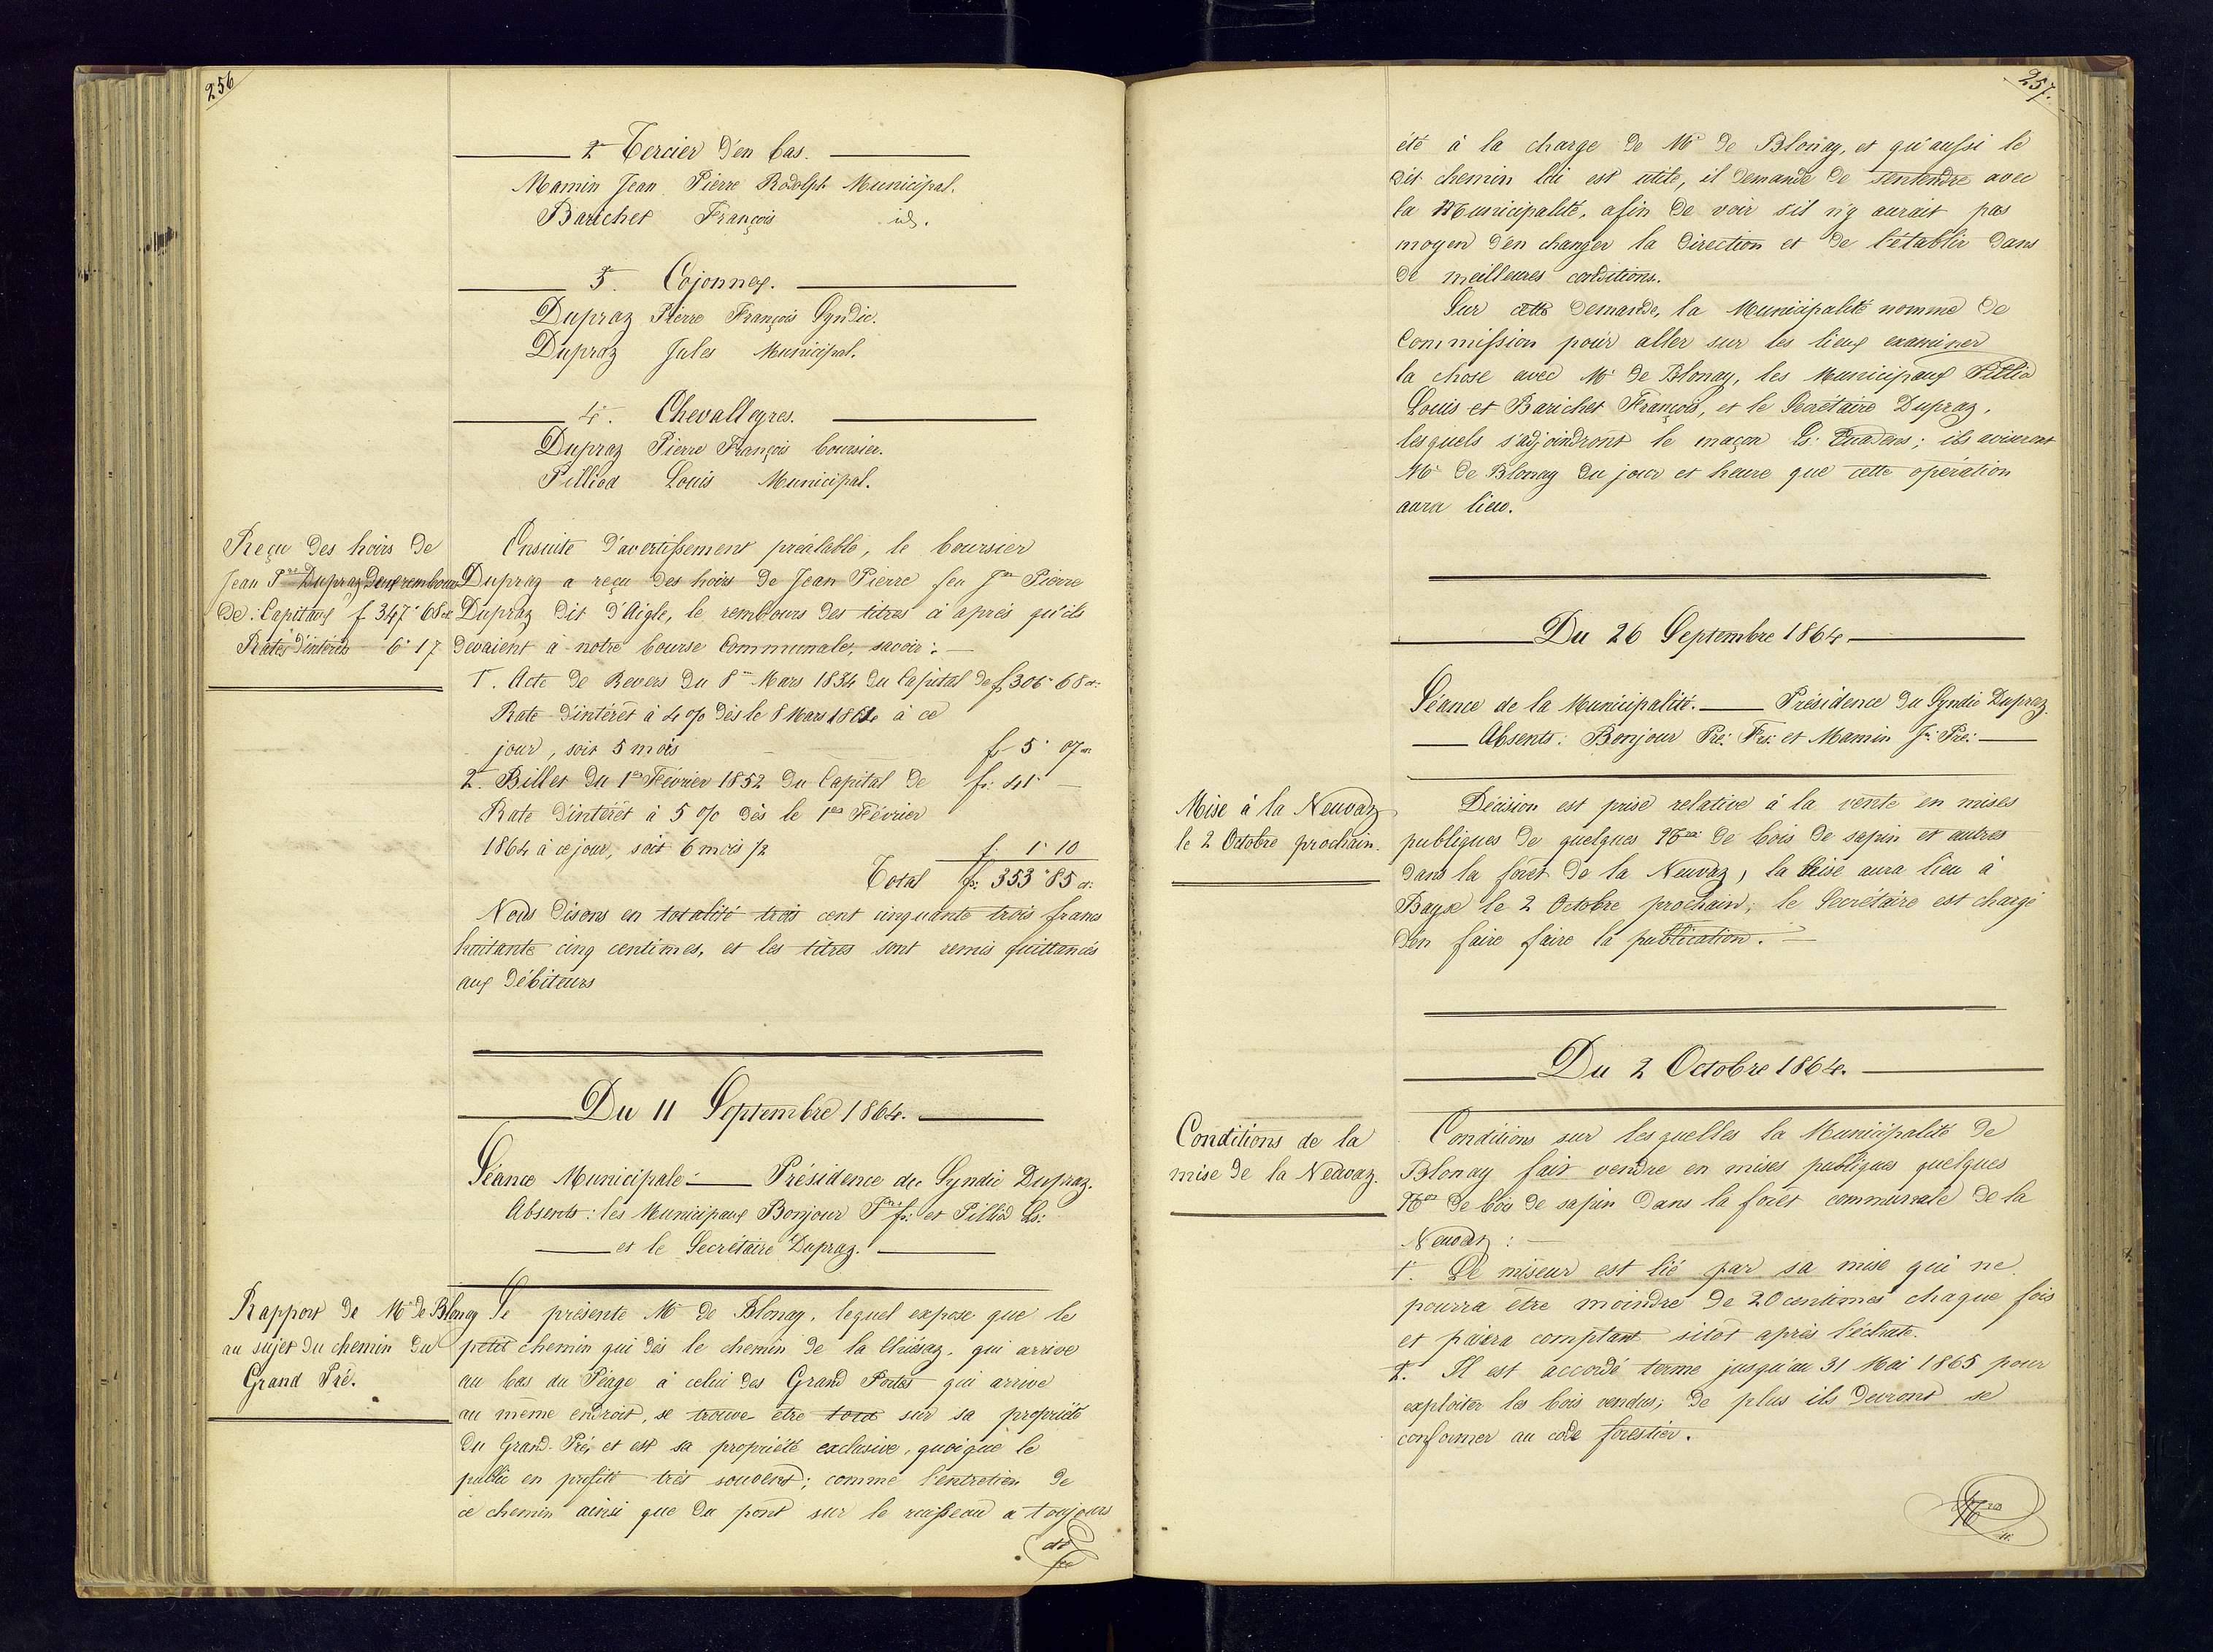 256
2º Tercier d'en bas.
Mamin Jean Pierre Rodolph Municipal.
Barichet François id.
3º. Cojonnex.
Dupraz Pierre François Syndic.
Dupraz Jules Municipal.
4º. Chevalleyres.
Dupraz Pierre François boursier.
Pilliod Louis Municipal.
Reçu des hoirs de
Jean Pre Dupraz
de: Capitaux f 347" 68 ct
Rates d'intérêts 6" 17
Ensuite d'avertissement préalable, le boursier
Dupraz a reçu des hoirs de Jean Pierre feu Jn Pierre
Dupraz dit d'Aigle, le rembours des titres ci après qu'ils
devaient à notre bourse Communale, savoir:
1º. Acte de Revers du 8me Mars 1834 du Capital de f 306" 68 ct:
Rate d'intérêt à 4 % dès le 8 Mars 1864 à ce
jour, soit 5 mois f 5" 07 ct
2º. Billet du 1er Février 1852 du Capital de fr: 41" —
Rate d'intérêt à 5 % dès le 1er Février
1864 à ce jour, soit 6 mois ½ f. 1" 10
Total fr: 353" 85 ct:
Nous disons en totalité trois cent cinquante trois francs
huitante cinq centimes, et les titres sont remis quittancés
aux débiteurs
Du 11 Septembre 1864.
Séance Municipale. Présidence du Syndic Dupraz.
Absents: les Municipaux Bonjour Pre f: et Pilliod Ls:
et le Secrétaire Dupraz.
Rapport de Mr de Blonay
au sujet du chemin du
Grand Pré.
Se présente Mr de Blonay, lequel expose que le
petit chemin qui dès le chemin de la Chiésaz, qui arrive
au bas du Péage à celui des Grand Portes qui arrive
au même endroit, se trouve être tout sur sa propriété
du Grand-Pré, et est sa propriété exclusive, quoique le
public en profite très souvent; comme l'entretien de
ce chemin ainsi que du pont sur le ruisseau a toujours
257.
été à la charge de Mr de Blonay, et qu'aussi le
dit chemin lui est utile, il demande de s'entendre avec
la Municipalité, afin de voir s'il n'y aurait pas
moyen d'en changer la direction et de l'établir dans
de meilleures conditions.
Sur cette demande, la Municipalité nomme de
Commission pour aller sur les lieux examiner
la chose avec Mr de Blonay, les Municipaux Pilliod
Louis et Barichet François, et le Secrétaire Dupraz,
lesquels s'adjoindront le maçon Ls: ; ils aviseront
Mr de Blonay du jour et heure que cette opération
aura lieu.
Du 26 Septembre 1864.
Séance de la Municipalité. Présidence du Syndic Dupraz.
Absents: Bonjour Pre: Frs: et Mamin Jn: Pre:
Mise à la Neuvaz
le 2 Octobre prochain.
Décision est prise relative à la vente en mises
publiques de quelques de bois de sapin et autres
dans la forêt de la Neuvaz, la Mise aura lieu à
Bayse le 2 Octobre prochain; le Secrétaire est chargé
d'en faire faire la publication.
Du 2 Octobre 1864.
Conditions de la
mise de la Neuvaz.
Conditions sur lesquelles la Municipalité de
Blonay fait vendre en mises publiques quelques
de bois de sapin dans la forêt communale de la
Neuvaz:
1º. Le miseur est lié par sa mise qui ne
pourra être moindre de 20 centimes chaque fois
et paiera comptant sitôt après l'échute.
2º. Il est accordé terme jusqu'au 31 Mai 1865 pour
exploiter les bois vendus; de plus ils devront se
conformer au code forestier.